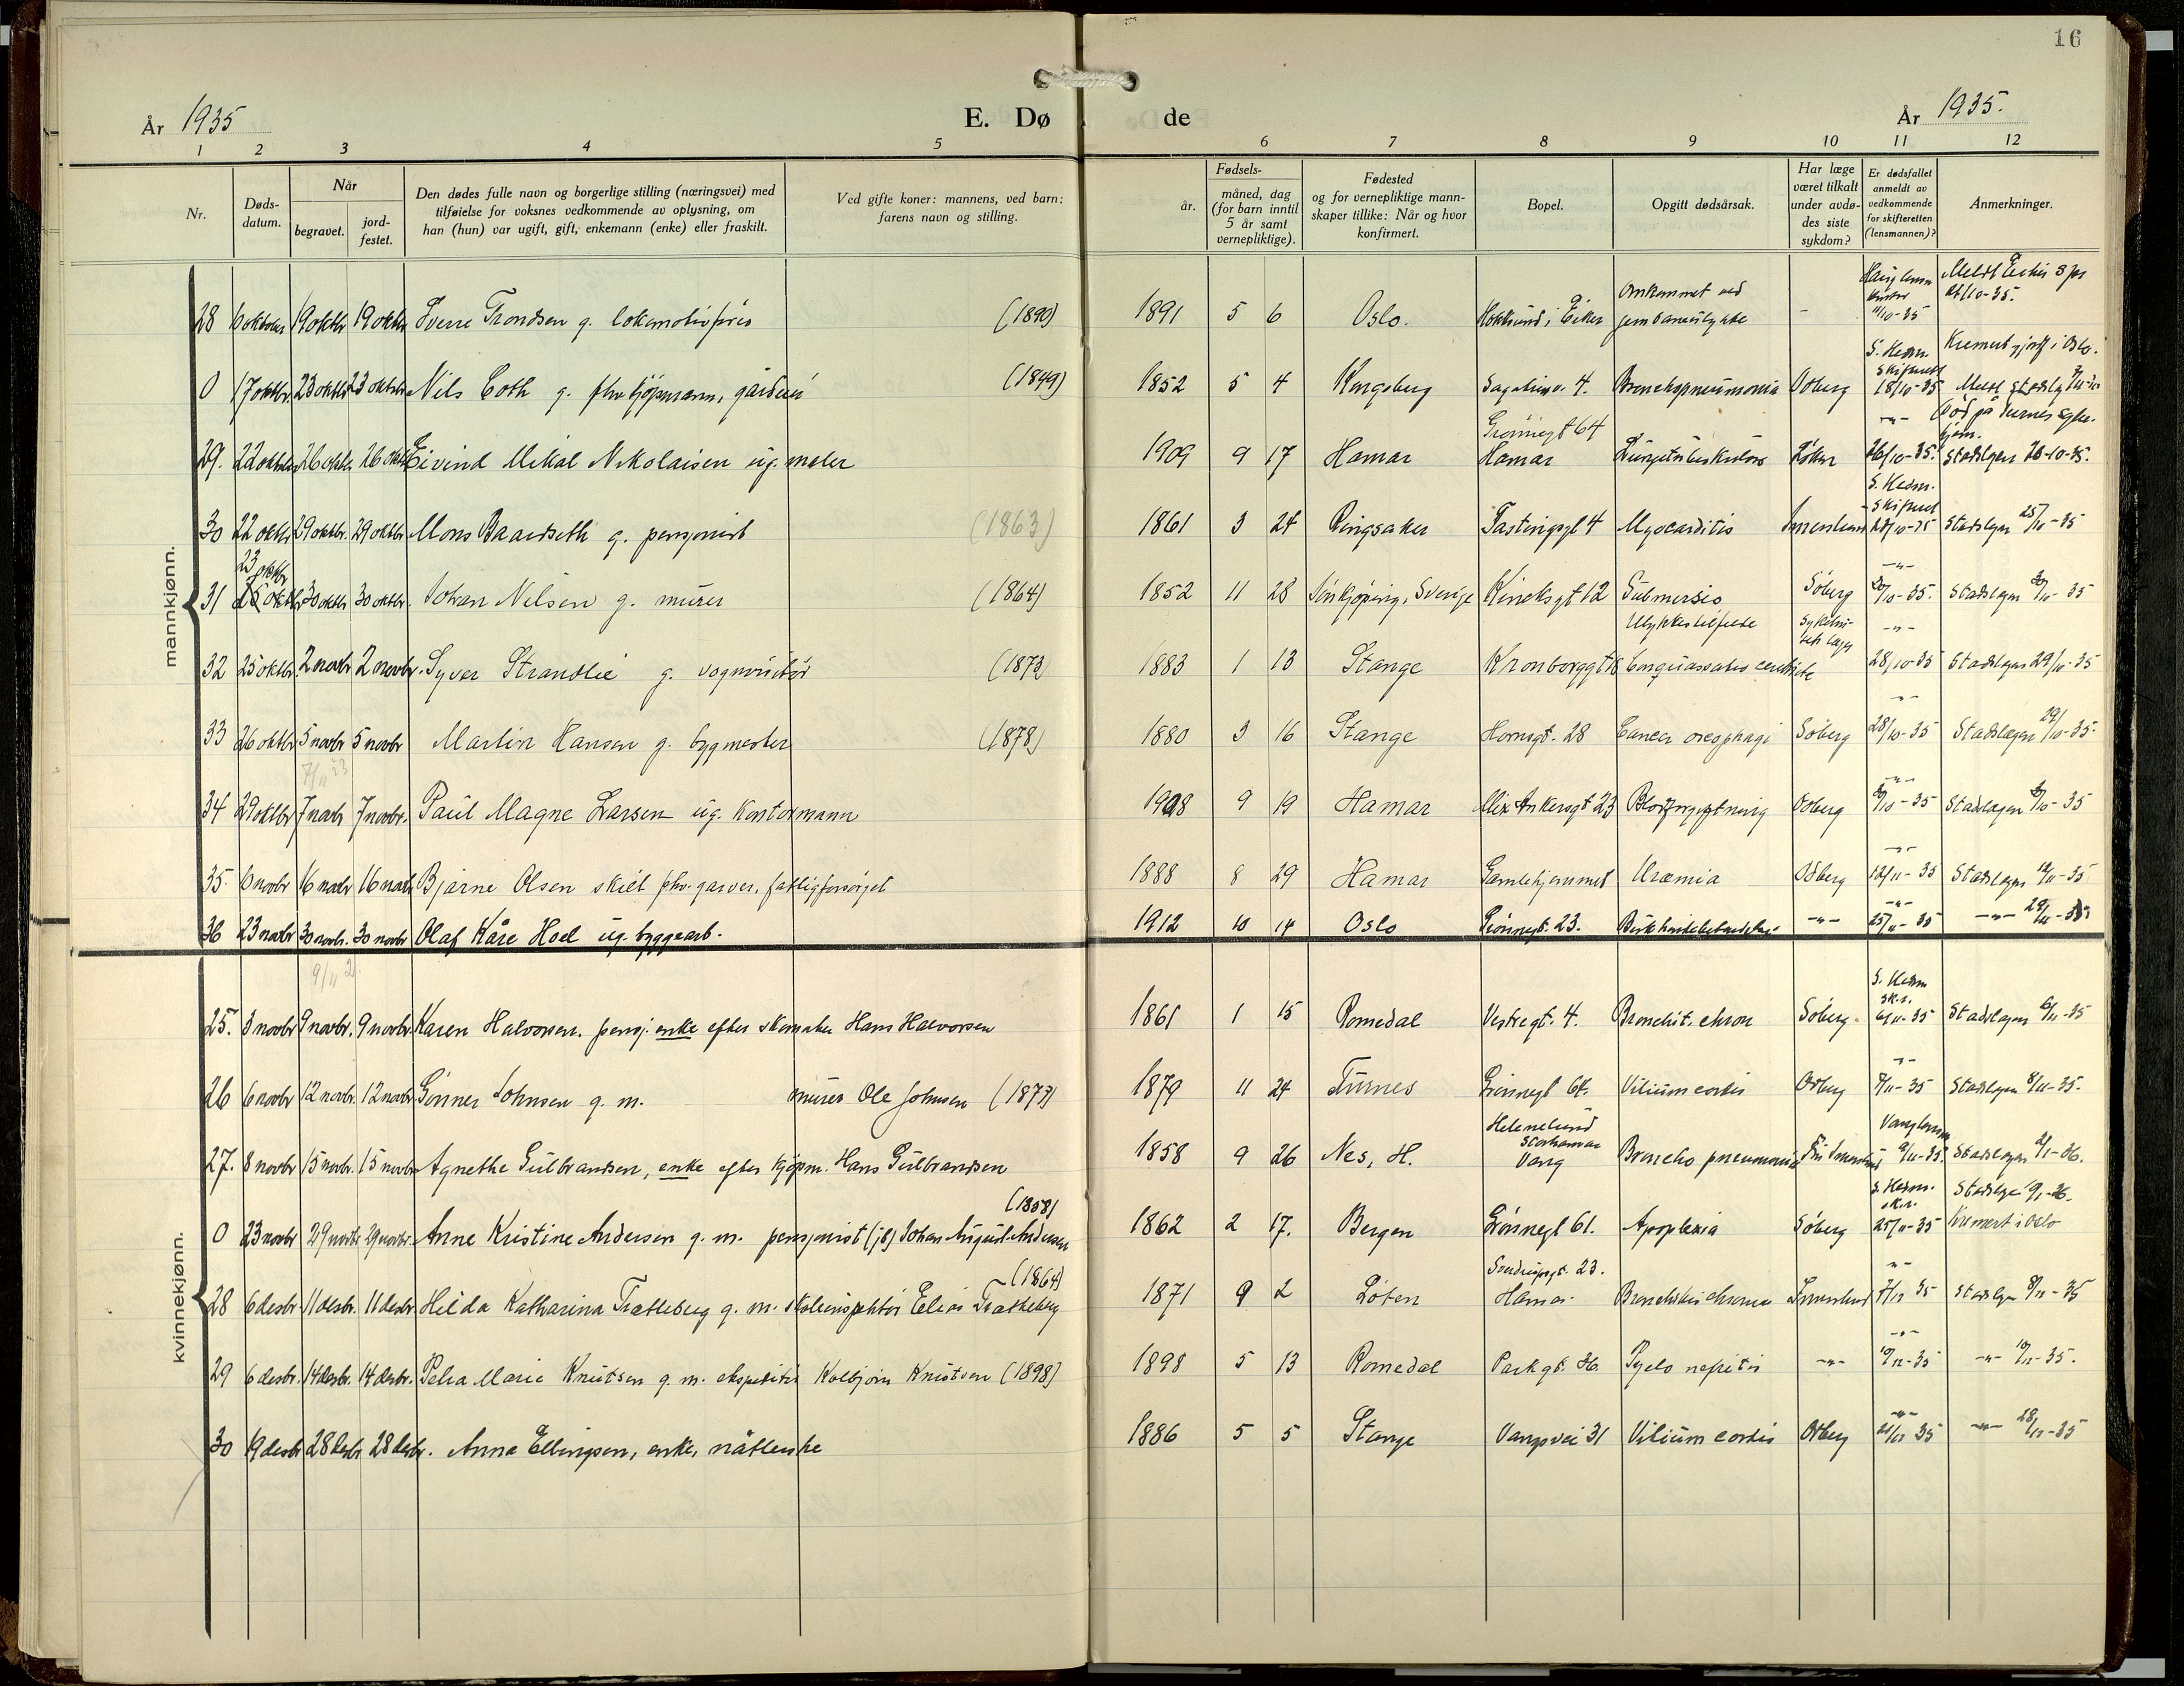 16
År 1935 E. Dø de År 1935.
1 2 3 4 5 6 7 8 9 10 11 12
Nr. Døds-datum. Når begravet. jord-festet. Den dødes fulle navn og borgerlige stilling (næringsvei) med tilføielse for voksnes vedkommende av oplysning, om han (hun) var ugift, gift, enkemann (enke) eller fraskilt. Ved gifte koner: mannens, ved barn: farens navn og stilling. Fødsels- år. måned, dag (for barn inntil 5 år samt vernepliktige). Fødested og for vernepliktige mann-skaper tillike: Når og hvor konfirmert. Bopel. Opgitt dødsårsak. Har læge været tilkalt under avdø-des siste sykdom? Er dødsfallet anmeldt av vedkommende for skifteretten (lensmannen)? Anmerkninger.
mannkjønn.
28 6 oktober 19 oktbr 19 oktbr Sverre Trondsen g. lokomotivfører (1890) 1891 5 6 Oslo. Hokksund i Eiker Omkommet ved jernbaneulykke - 11/10-35
0 17 oktbr. 23 oktbr 23 oktbr Nils Coth g. fhv kjøpmann, gårdeier (1849) 1852 5 4 Kongsberg Sagatunv. 4. Bronchopneumonia Odberg S. Hedm. Skifterett 18/10-35 Kremert i Oslo.
29. 22 oktober 26 oktbr 26 oktbr Eivind Mikal Nikolaisen ug. maler 1909 9 17 Hamar Grønnegt 64 Hamar Lungetuberkulose Løken -"- 26/10-35. Død på Turnes sykehjem. Stadslegen 26-10-35.
30 22 oktbr 29 oktbr. 29 oktbr Mons Baardseth g. pensjonist (1863) 1861 3 24 Ringsaker Fastingsgt 4 Myocarditis Smerslund S. Hedm. Skifterett 28/10-35 Stadslegen 25/10-35
31 23 oktbr 30 oktbr 30 oktbr. Johan Nilsen g. murer (1864) 1852 11 28 Jönkjöping, Sverige Kincksgt 12 Submersio Ulykkestilfelle Søberg -"- 30/10-35. Stadslegen 30/10-35
32 25 oktbr. 2 novbr 2 novbr. Syver Strandlie g. vognvisitør (1873) 1883 1 13 Stange Kronborggt 18 Conquassatio Sykehusets lege -"- 28/10-35 Stadslegen 29/10-35
33 26 oktbr 5 novbr 5 novbr Martin Hansen g. bygmester (1878) 1880 3 16 Stange Hornsgt. 28 Cancer oesophagi Søberg -"- 28/10-35 Stadslegen 29/10-35.
34 29 oktbr 7 novbr 7 novbr. Paul Magne Larsen ug. kontormann 1908 9 19 Hamar Alex Ankersgt 23 Blodforgiftning Odberg -"- 30/10-35 Stadslegen 30/10-35
35. 6 novbr 16 novbr 16 novbr Bjarne Olsen skilt fhv. garver, fattigforsørget 1888 8 29 Hamar Gamlehjemmet Uræmia Odberg -"- 12/11-35 Stadslegen 12/11-35
36 23 novbr 30 novbr. 30 novbr Olaf Kåre Hoel ug. byggearb. 1912 10 14 Oslo Grønnegt. 23. -"- -"- 25/11-35 -"- 29/11-35
kvinnekjønn.
25. 3 novbr 9 novbr. 9 novbr. Karen Halvorsen. pensj. enke efter skomaker Hans Halvorsen 1861 1 15 Romedal Vestregt. 4. Bronchit. chron Søberg S. Hedm sk.r. 6/11-35 Stadslegen 6/11-35
26 6 novbr 12 novbr. 12 novbr Gunner Johnsen g. m. murer Ole Johnsen (1877) 1879 11 24 Furnes Grønnegt 64. Vitium cordis Odberg -"- 7/11-35 Stadslegen 8/11-35.
27. 8 novbr 15 novbr. 15 novbr Agnethe Gulbrandsen, enke efter kjøpm. Hans Gulbrandsen 1858 9 26 Nes, H. Helenelund Storhamar Vang Broncho pneumonia 9/11-35. Stadslegen 9/1-36.
0 23 novbr 29 novbr 29 novbr. Anne Kristine Andersen g. m. pensjonist (jb) Johan August Andersen (1858) 1862 2 17. Bergen Grønnegt 61. Apoplexia Søberg S. Hedm. sk.r. 25/11-35 Stadslege 9/1-36. Kremert i Oslo
28 6 desbr. 11 desbr. 11 desbr Hilda Katharina Trætteberg g. m. skoleinspektør Elias Trætteberg (1864) 1871 9 2 Løten Sverdrupsgt. 23. Hamar Bronchitis chronica Smerslund -"- 7/12 35 Stadslegen 8/12-35
29 6 desbr. 14 desbr. 14 desbr. Petra Marie Knutsen g. m. ekspeditør Kolbjørn Knutsen (1898) 1898 5 13 Romedal Parkgt. 36. Pyelo nefritis -"- -"- 10/12-35 -"- 10/12-35.
30 19 desbr 28 desbr 28 desbr. Anna Ellingsen, enke, nåtlerske 1886 5 5 Stange Vangsvei 31 Vitium cordis Odberg -"- 21/12 35 -"- 28/12-35